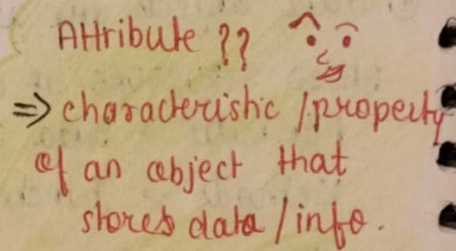 Attribute ??
⇒ characteristic / property
of an object that
stores data / info.